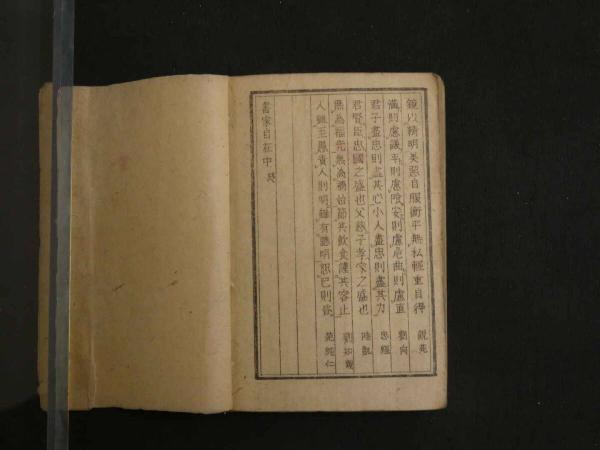 鏡以精明美惡自服衡平無私輕重自得 說苑
滿則慮謙平則慮險安則慮危曲則慮直 劉向
君子盡忠則盡其心小人盡忠則盡其力 忠經
君賢臣忠國之盛也父慈子孝家之盛也 陸凱
無為福先無為禍始節其飲食謹其容止
人雖至愚責人則明雖有聰明恕己則昏 范純仁
書家自在中